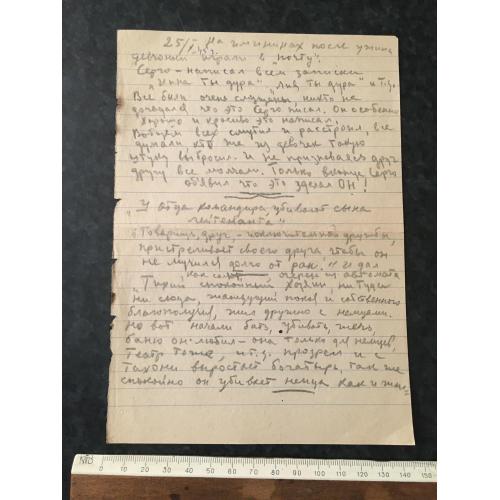 25/I-45г. На именинах после ужина
девчонки играли в "почту".
Серго - написал всем записки
"Инна ты дура", "Лиц ты дура" и т.д.
Все были очень смущены, никто не
догадался что это Серго писал. Он особенно
хорошо и красиво это написал.
Вобщем всех смутил и расстроил все
думали кто же из девочек такую
штуку выбросил. И не признаваясь друг
другу все молчали. Только в конце Серго
объявил что это зделал ОН!
"У отца командира, убивают сына
лейтенанта"
Товарищ, друг, - исключительной дружбы,
пристреливает своего друга чтобы он
не мучился долго от ран. "И дал
очередь из автомата
"Тихий спокойный хозяин, ни туда
ни сюда, жаждущий покоя и собственного
благополучия, жил дружено с немцами.
Но вот начали бить, убивать, жечь,
баню он любил - она только для немцев,
Театр тоже, и т.д. прозрел и с
Тихони вырастает богатырь, так же
спокойно он убивает немца как и
NTD 10 20 30 40 50 60 70 80 90 100 110 120 130 140 150